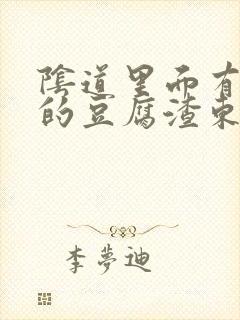 陰道里面有
的豆腐渣東
李夢迪